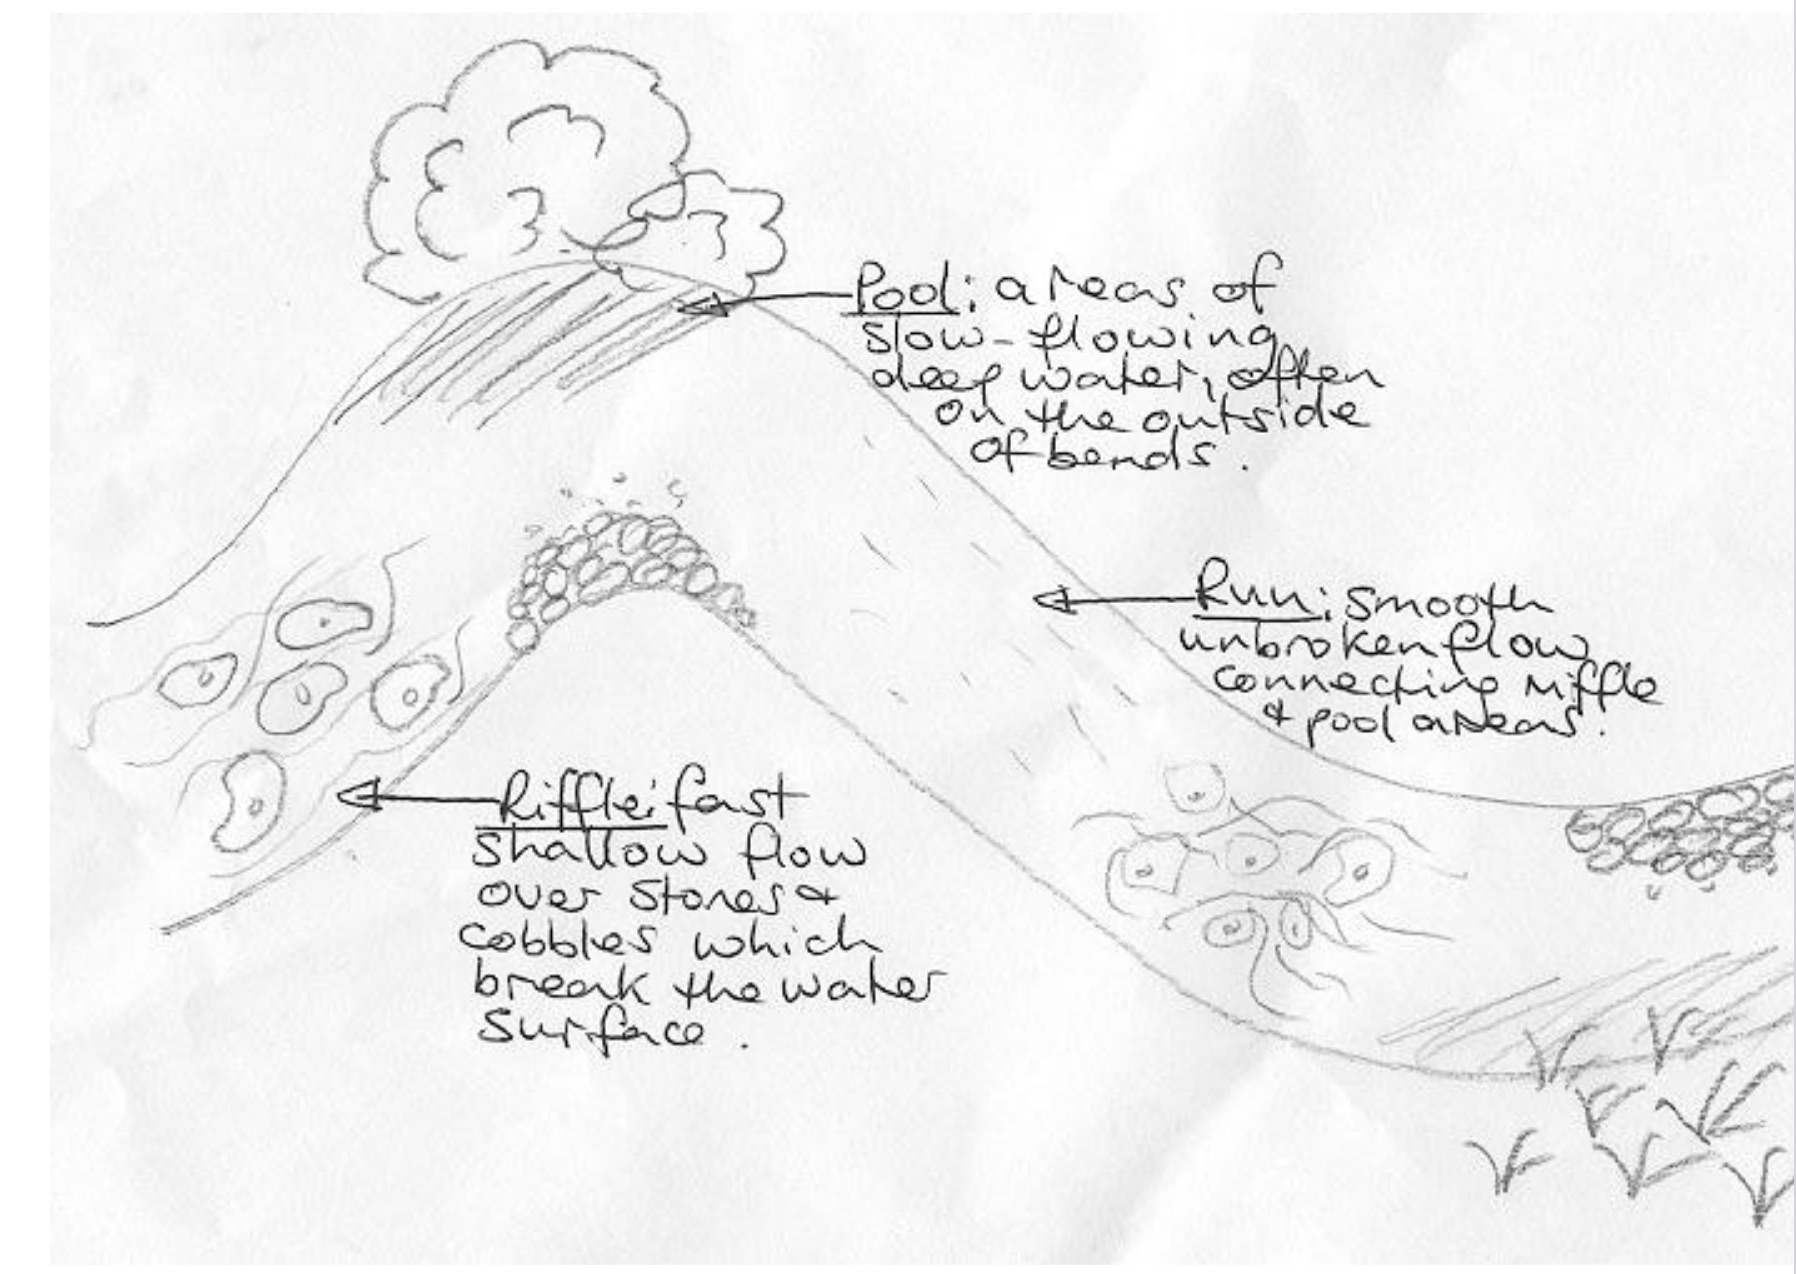 Pool: areas of
slow-flowing
deep water, often
on the outside
of bends.
Run: smooth
unbroken flow
connecting riffle
& pool areas.
Riffle: fast
shallow flow
over stones &
cobbles which
break the water
surface.